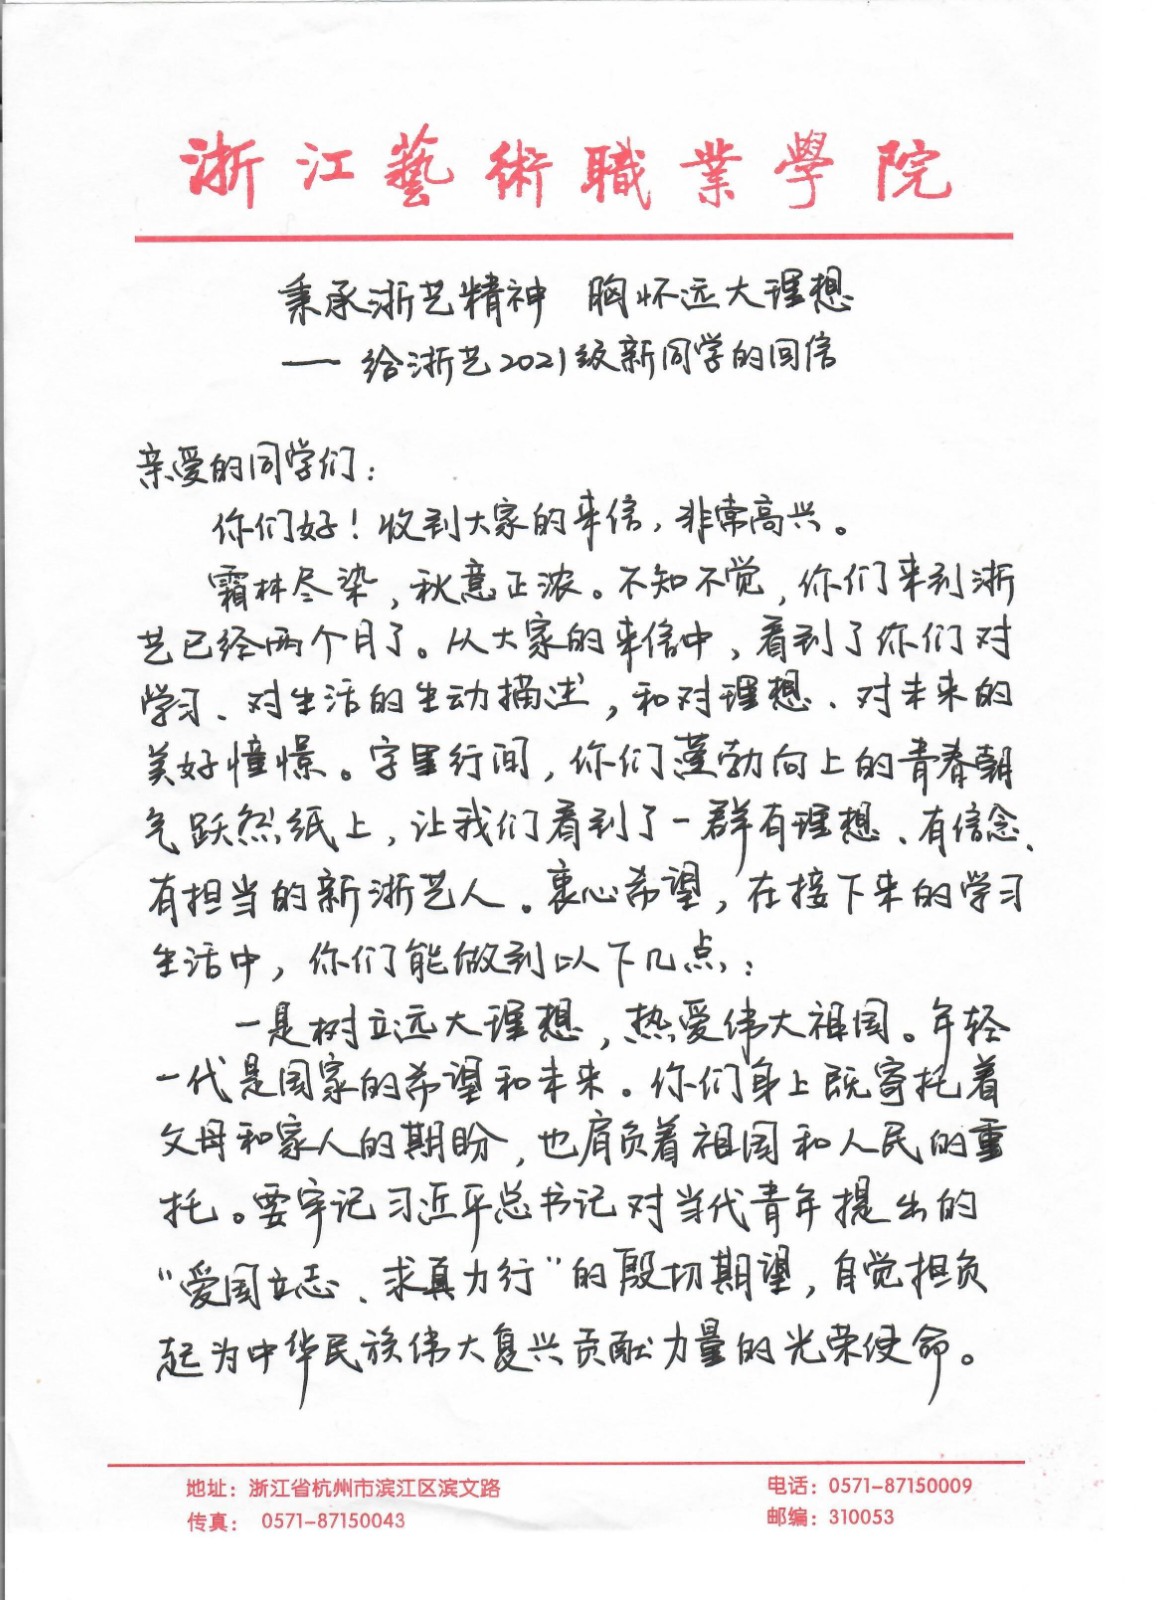 浙江藝術職業學院
秉承浙艺精神 胸怀远大理想
——给浙艺2021级新同学的回信
亲爱的同学们：
你们好！收到大家的来信，非常高兴。
霜林尽染，秋意正浓。不知不觉，你们来到浙
艺已经两个月了。从大家的来信中，看到了你们对
学习、对生活的生动描述，和对理想、对未来的
美好憧憬。字里行间，你们蓬勃向上的青春朝
气跃然纸上，让我们看到了一群有理想、有信念、
有担当的新浙艺人。衷心希望，在接下来的学习
生活中，你们能做到以下几点：
一是树立远大理想，热爱伟大祖国。年轻
一代是国家的希望和未来。你们身上既寄托着
父母和家人的期盼，也肩负着祖国和人民的重
托。要牢记习近平总书记对当代青年提出的
“爱国立志、求真力行”的殷切期望，自觉担负
起为中华民族伟大复兴贡献力量的光荣使命。
地址：浙江省杭州市滨江区滨文路 电话：0571-87150009
传真： 0571-87150043 邮编：310053